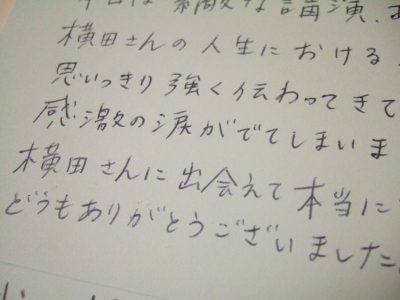 今日は素敵な講演、あ
横田さんの人生における
思いっきり強く伝わってきて
感激の涙がでてしまいま
横田さんに出会えて本当に
どうもありがとうございました。